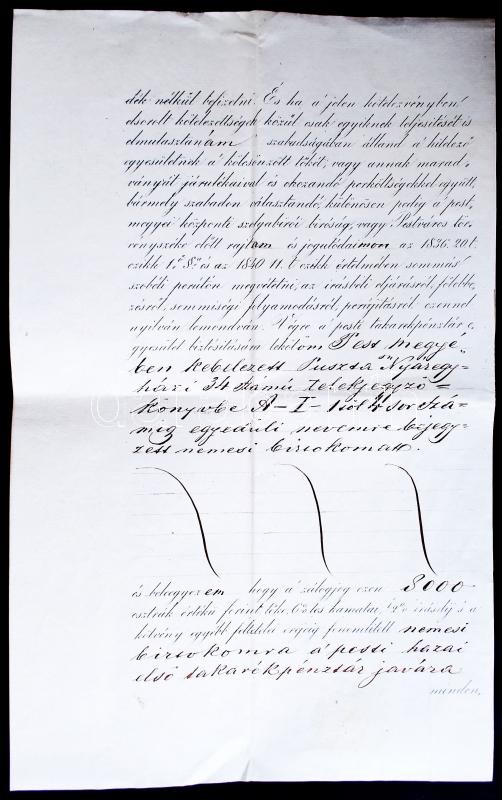 dék nélkül befizetni. És ha a' jelen kötelezvényben
elsorolt kötelezettségek közül csak egyiknek teljesitését is
elmulasztanám szabadságában álland a' hitelező
egyesületnek a' kölcsönzött tőkét, vagy annak marad-
ványát járulékaival és okozandó perköltségekkel együtt,
bármely szabadon választandó, különösen pedig a' pest,
megyei központi szolgabirói biróság, vagy Pestváros tör-
vényszéke előtt rajtam és jogutódaimon az 1836. 20. t.
czikk 1ő §. és az 1840 11. t. czikk értelmében sommás
szóbeli perúton megvétetni, az irásbeli eljárásról, fölebbe-
zésről, semmiségi folyamodásról, perújitásról ezennel
nyilván lemondván. Végre a' pesti takarékpénztár e-
gyesület biztositására lekötöm Pest megyé-
ben kebelezett Puszta Nyáregy-
házi 34 számú telekjegyző-
könyvbe A-I-1től 4 sor Szá-
mig egyedüli nevemre béjegy-
zett nemesi birtokomat.
és beleegyezem hogy a' zálogjog ezen 8000
osztrák értékü forint tőke, 6% tes kamatai, ½% irásdíj s a
kötvény egyebb feltételei erejéig fenemlitett nemesi
birtokomra a' pesti hazai
első takarékpénztár javára
minden,